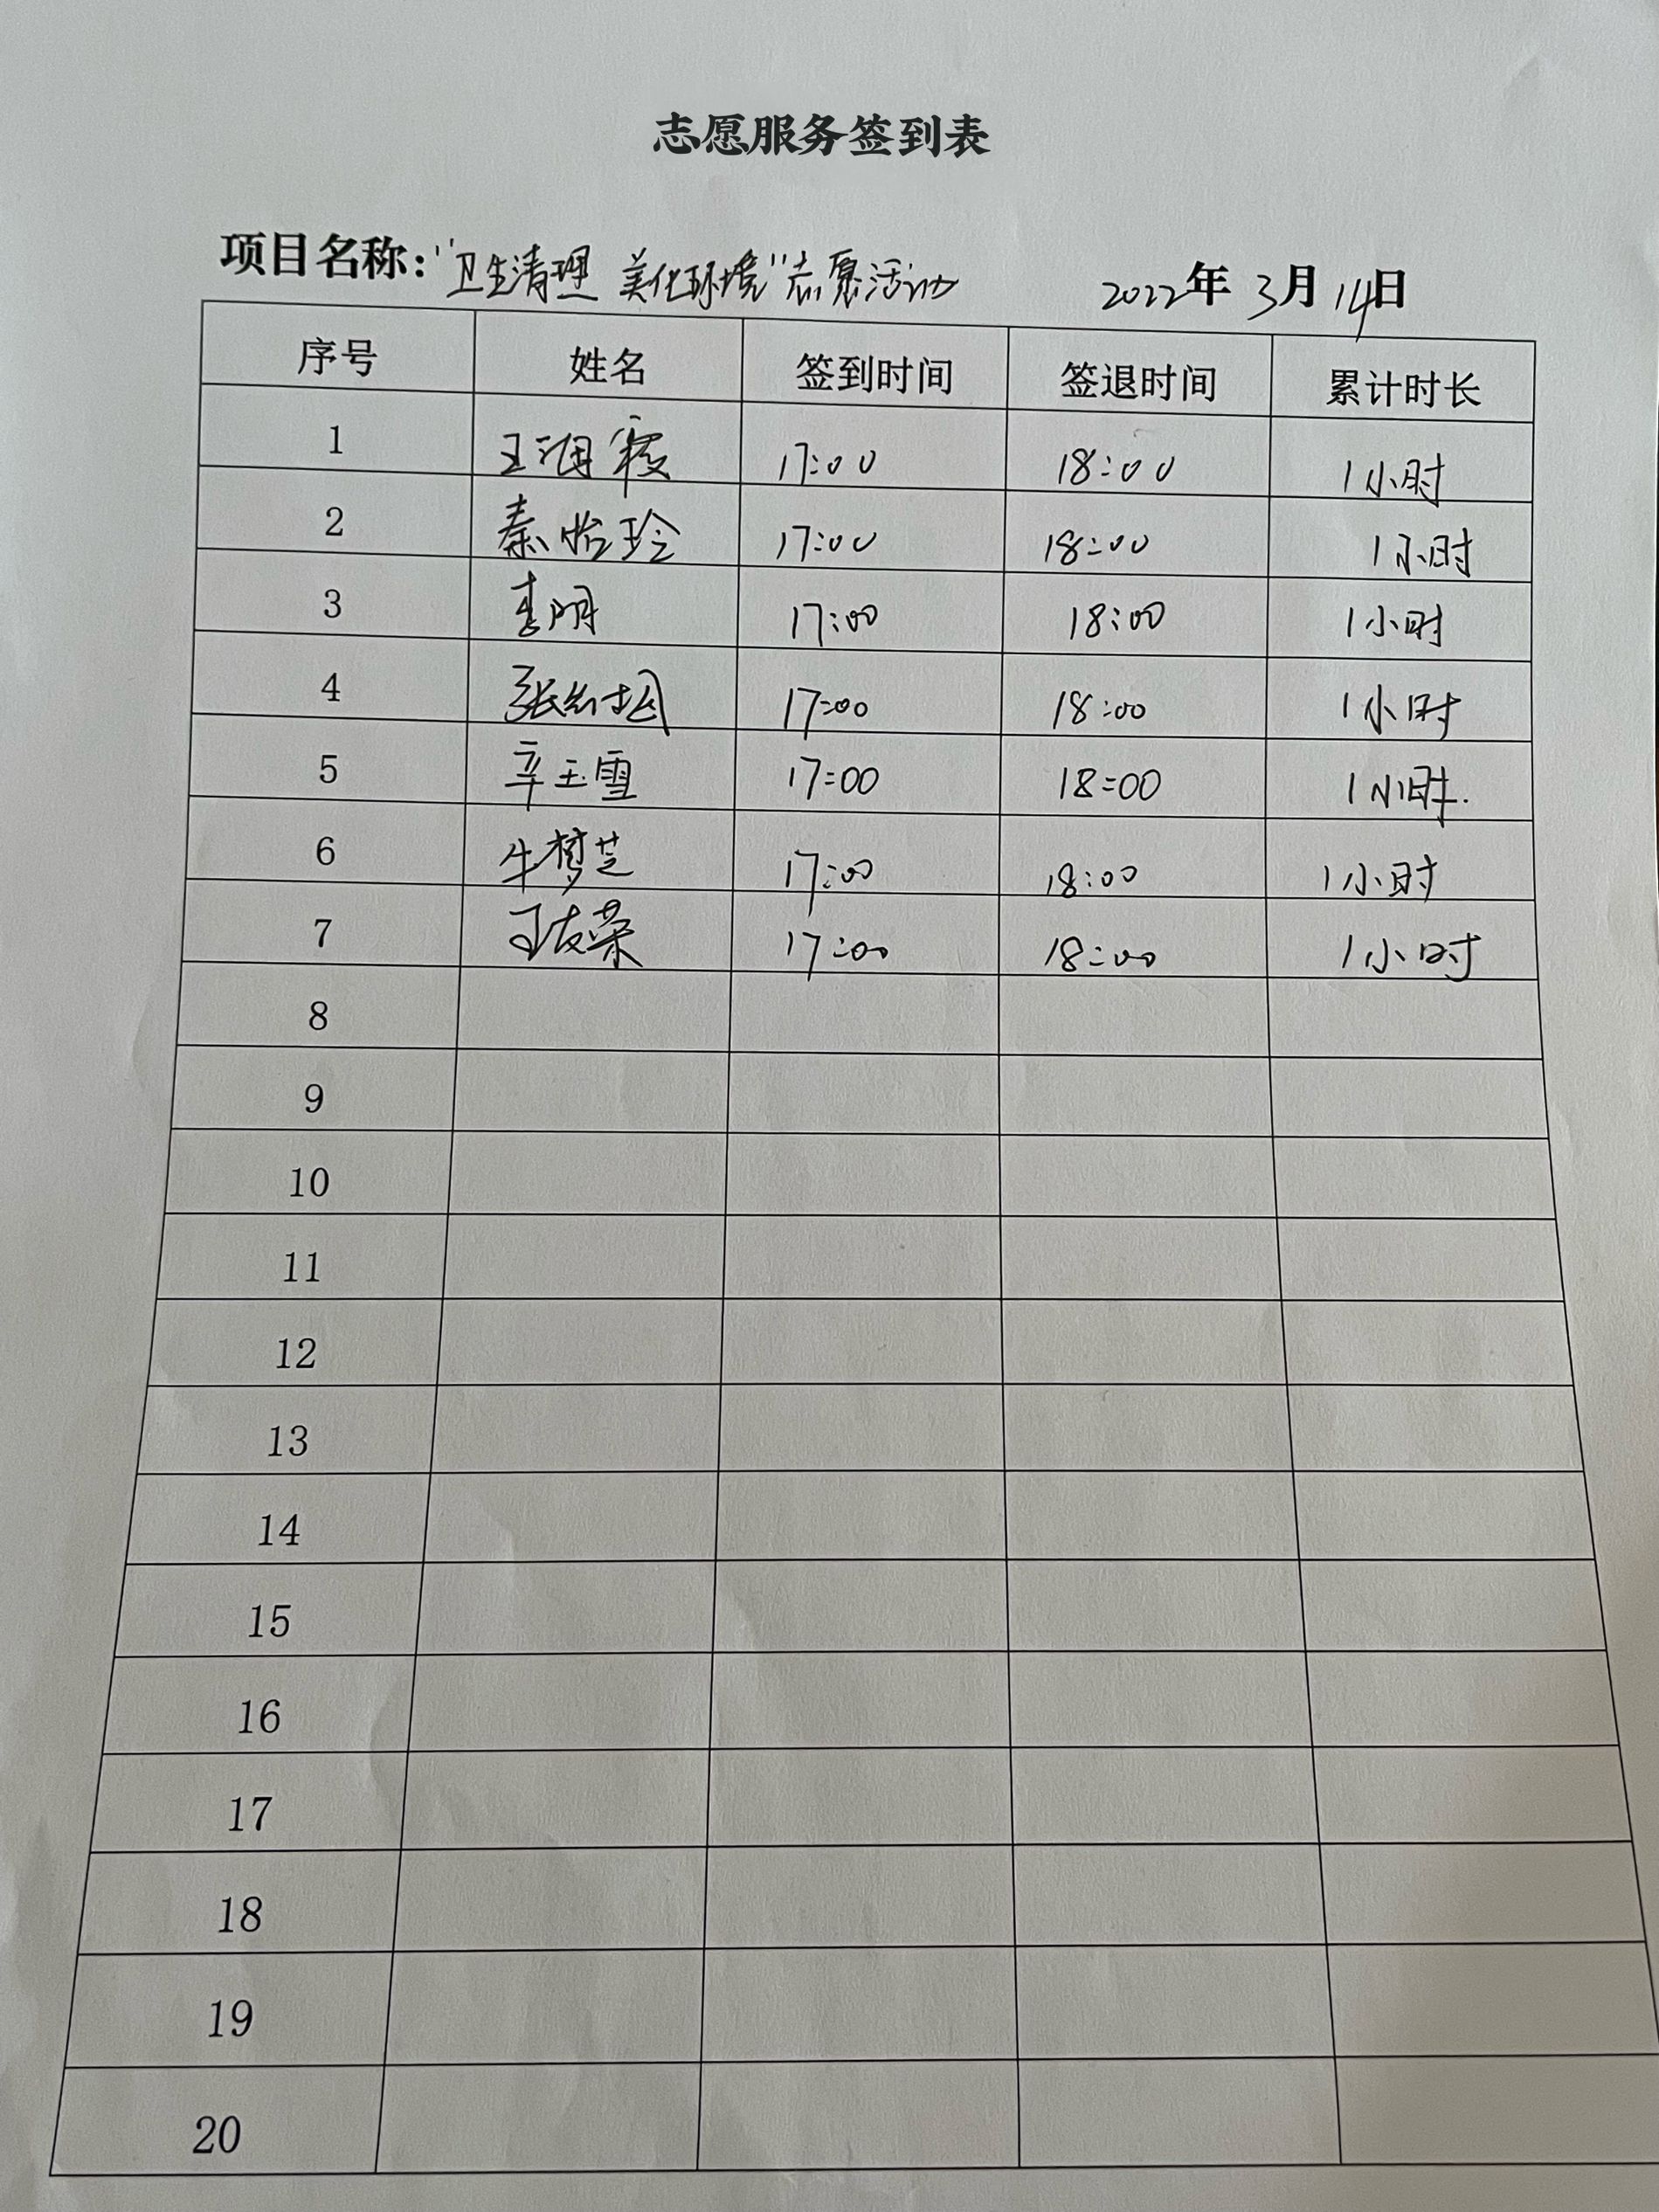 志愿服务签到表
项目名称："卫生清理 美化环境"志愿活动 2022年 3月 14日
序号 姓名 签到时间 签退时间 累计时长
1 王润霞 17:00 18:00 1小时
2 秦怡玲 17:00 18:00 1小时
3 李明 17:00 18:00 1小时
4 张 17:00 18:00 1小时
5 辛玉雪 17:00 18:00 1小时
6 牛梦芝 17:00 18:00 1小时
7 王友荣 17:00 18:00 1小时
8
9
10
11
12
13
14
15
16
17
18
19
20